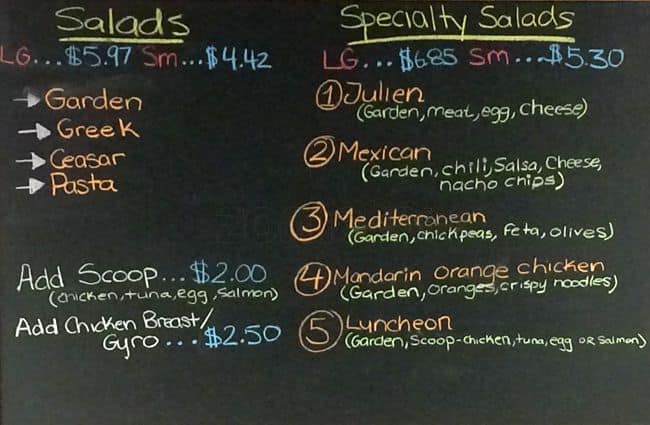 Salads
LG...$5.97 Sm...$4.42
Garden
Greek
Ceasar
Pasta
Add Scoop...$2.00
(chicken, tuna, egg, Salmon)
Add Chicken Breast/
Gyro...$2.50
Specialty Salads
LG...$6.85 Sm...$5.30
1 Julien
(Garden, meat, egg, Cheese)
2 Mexican
(Garden, chili, Salsa, Cheese,
nacho chips)
3 Mediterranean
(Garden, chickpeas, Feta, olives)
4 Mandarin orange chicken
(Garden, oranges, crispy noodles)
5 Luncheon
(Garden, Scoop-chicken, tuna, egg or Salmon)